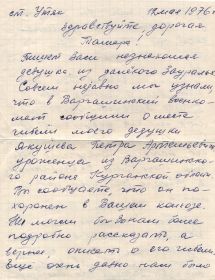 ст. Утяк 18 мая 1976 г.
Здравствуйте, дорогая
Тамара.
Пишет Вам незнакомая
девушка из далёкого Зауралья
Совсем недавно мы узнали,
что в Варгашинский военко-
мат сообщили о месте
гибели моего дедушки
Якушева Петра Артемьевича
уроженца из Варгашинско-
го района Курганской области
Вы сообщаете, что он по-
хоронен в Вашем колхозе
Не могли бы Вы нам более
подробно рассказать, а
вернее, описать о его гибели
Ещё очень давно нам было